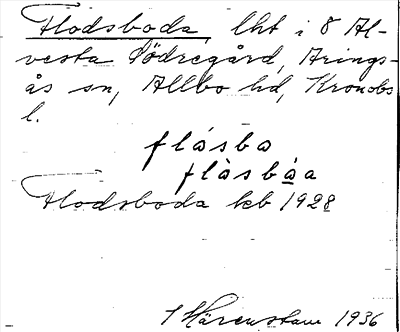 Flodsboda, lht i 8 Al-
vesta Södregård, Arings-
ås sn, Allbo hd, Kronobs
l.
flåsbo
flåsbåa
Flodsboda kb 1928
Härenstam 1936